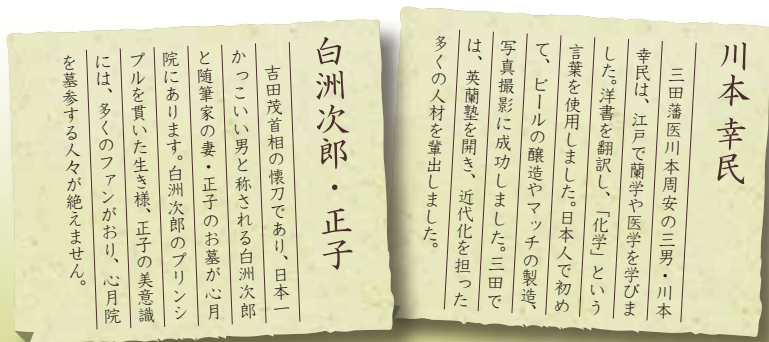 川本 幸民
三田藩医川本周安の三男・川本
幸民は、江戸で蘭学や医学を学びま
した。洋書を翻訳し、「化学」という
言葉を使用しました。日本人で初め
て、ビールの醸造やマッチの製造、
写真撮影に成功しました。三田で
は、英蘭塾を開き、近代化を担った
多くの人材を輩出しました。
白洲次郎・正子
吉田茂首相の懐刀であり、日本一
かっこいい男と称される白洲次郎
と随筆家の妻・正子のお墓が心月
院にあります。白洲次郎のプリンシ
プルを貫いた生き様、正子の美意識
には、多くのファンがおり、心月院
を墓参する人々が絶えません。